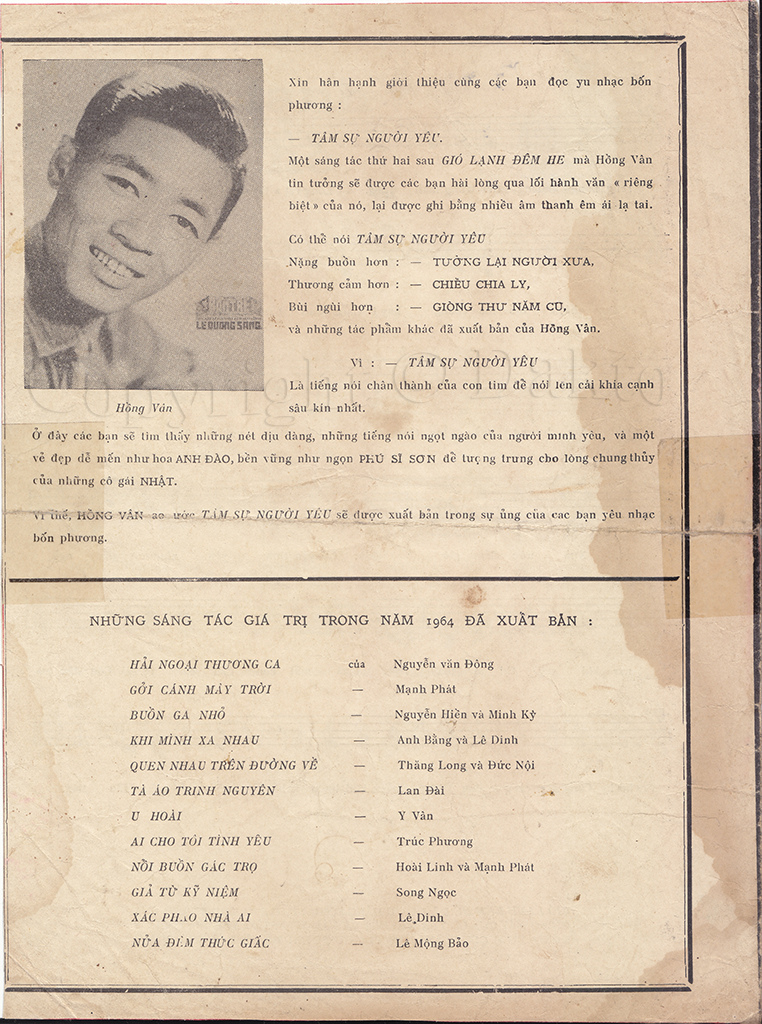 Xin hân hạnh giới thiệu cùng các bạn đọc yu nhạc bốn
phương :
— TÂM SỰ NGƯỜI YÊU.
Một sáng tác thứ hai sau GIÓ LẠNH ĐÊM HE mà Hồng Vân
tin tưởng sẽ được các bạn hài lòng qua lối hành văn « riêng
biệt » của nó, lại được ghi bằng nhiều âm thanh êm ái lạ tai.
Có thể nói TÂM SỰ NGƯỜI YÊU
Nặng buồn hơn : — TƯỞNG LẠI NGƯỜI XƯA,
Thương cảm hơn : — CHIỀU CHIA LY,
Bùi ngùi hơn : — GIÒNG THƯ NĂM CŨ,
và những tác phẩm khác đã xuất bản của Hồng Vân.
Vì : — TÂM SỰ NGƯỜI YÊU
Là tiếng nói chân thành của con tim để nói lên cái khía cạnh
sâu kín nhất.
LE QUANG SANG
Hồng Vân
Copyright
Ở đây các bạn sẽ tìm thấy những nét dịu dàng, những tiếng nói ngọt ngào của người mình yêu, và một
vẻ đẹp dễ mến như hoa ANH ĐÀO, bền vững như ngọn PHÚ SĨ SƠN để tượng trưng cho lòng chung thủy
của những cô gái NHẬT.
Vì thế, HỒNG VÂN ao ước TÂM SỰ NGƯỜI YÊU sẽ được xuất bản trong sự ủng của cac bạn yêu nhạc
bốn phương.
NHỮNG SÁNG TÁC GIÁ TRỊ TRONG NĂM 1964 ĐÃ XUẤT BẢN :
HẢI NGOẠI THƯƠNG CA của Nguyễn văn Đông
GỞI CÁNH MÂY TRỜI — Mạnh Phát
BUỒN GA NHỎ — Nguyễn Hiền và Minh Kỳ
KHI MÌNH XA NHAU — Anh Bằng và Lê Dinh
QUEN NHAU TRÊN ĐƯỜNG VỀ — Thăng Long và Đức Nội
TÀ ÁO TRINH NGUYÊN — Lan Đài
U HOÀI — Y Vân
AI CHO TÔI TÌNH YÊU — Trúc Phương
NỖI BUỒN GÁC TRỌ — Hoài Linh và Mạnh Phát
GIẢ TỪ KỸ NIỆM — Song Ngọc
XÁC PHÁO NHÀ AI — Lê Dinh
NỬA ĐÊM THỨC GIẤC — Lê Mộng Bảo